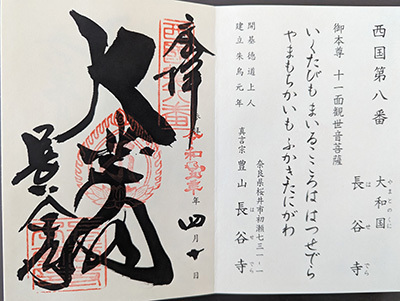 西国第八番
大和国
やまとのくに
長谷寺
はせでら
御本尊 十一面観世音菩薩
いくたびも まいるこころは はつせでら
やまもちかいも ふかきたにがわ
開基 徳道上人
建立 朱鳥元年
奈良県桜井市初瀬七三一-一
真言宗 豊山 長谷寺
はせでら
奉拝
年 四月十日
大悲閣
長谷寺